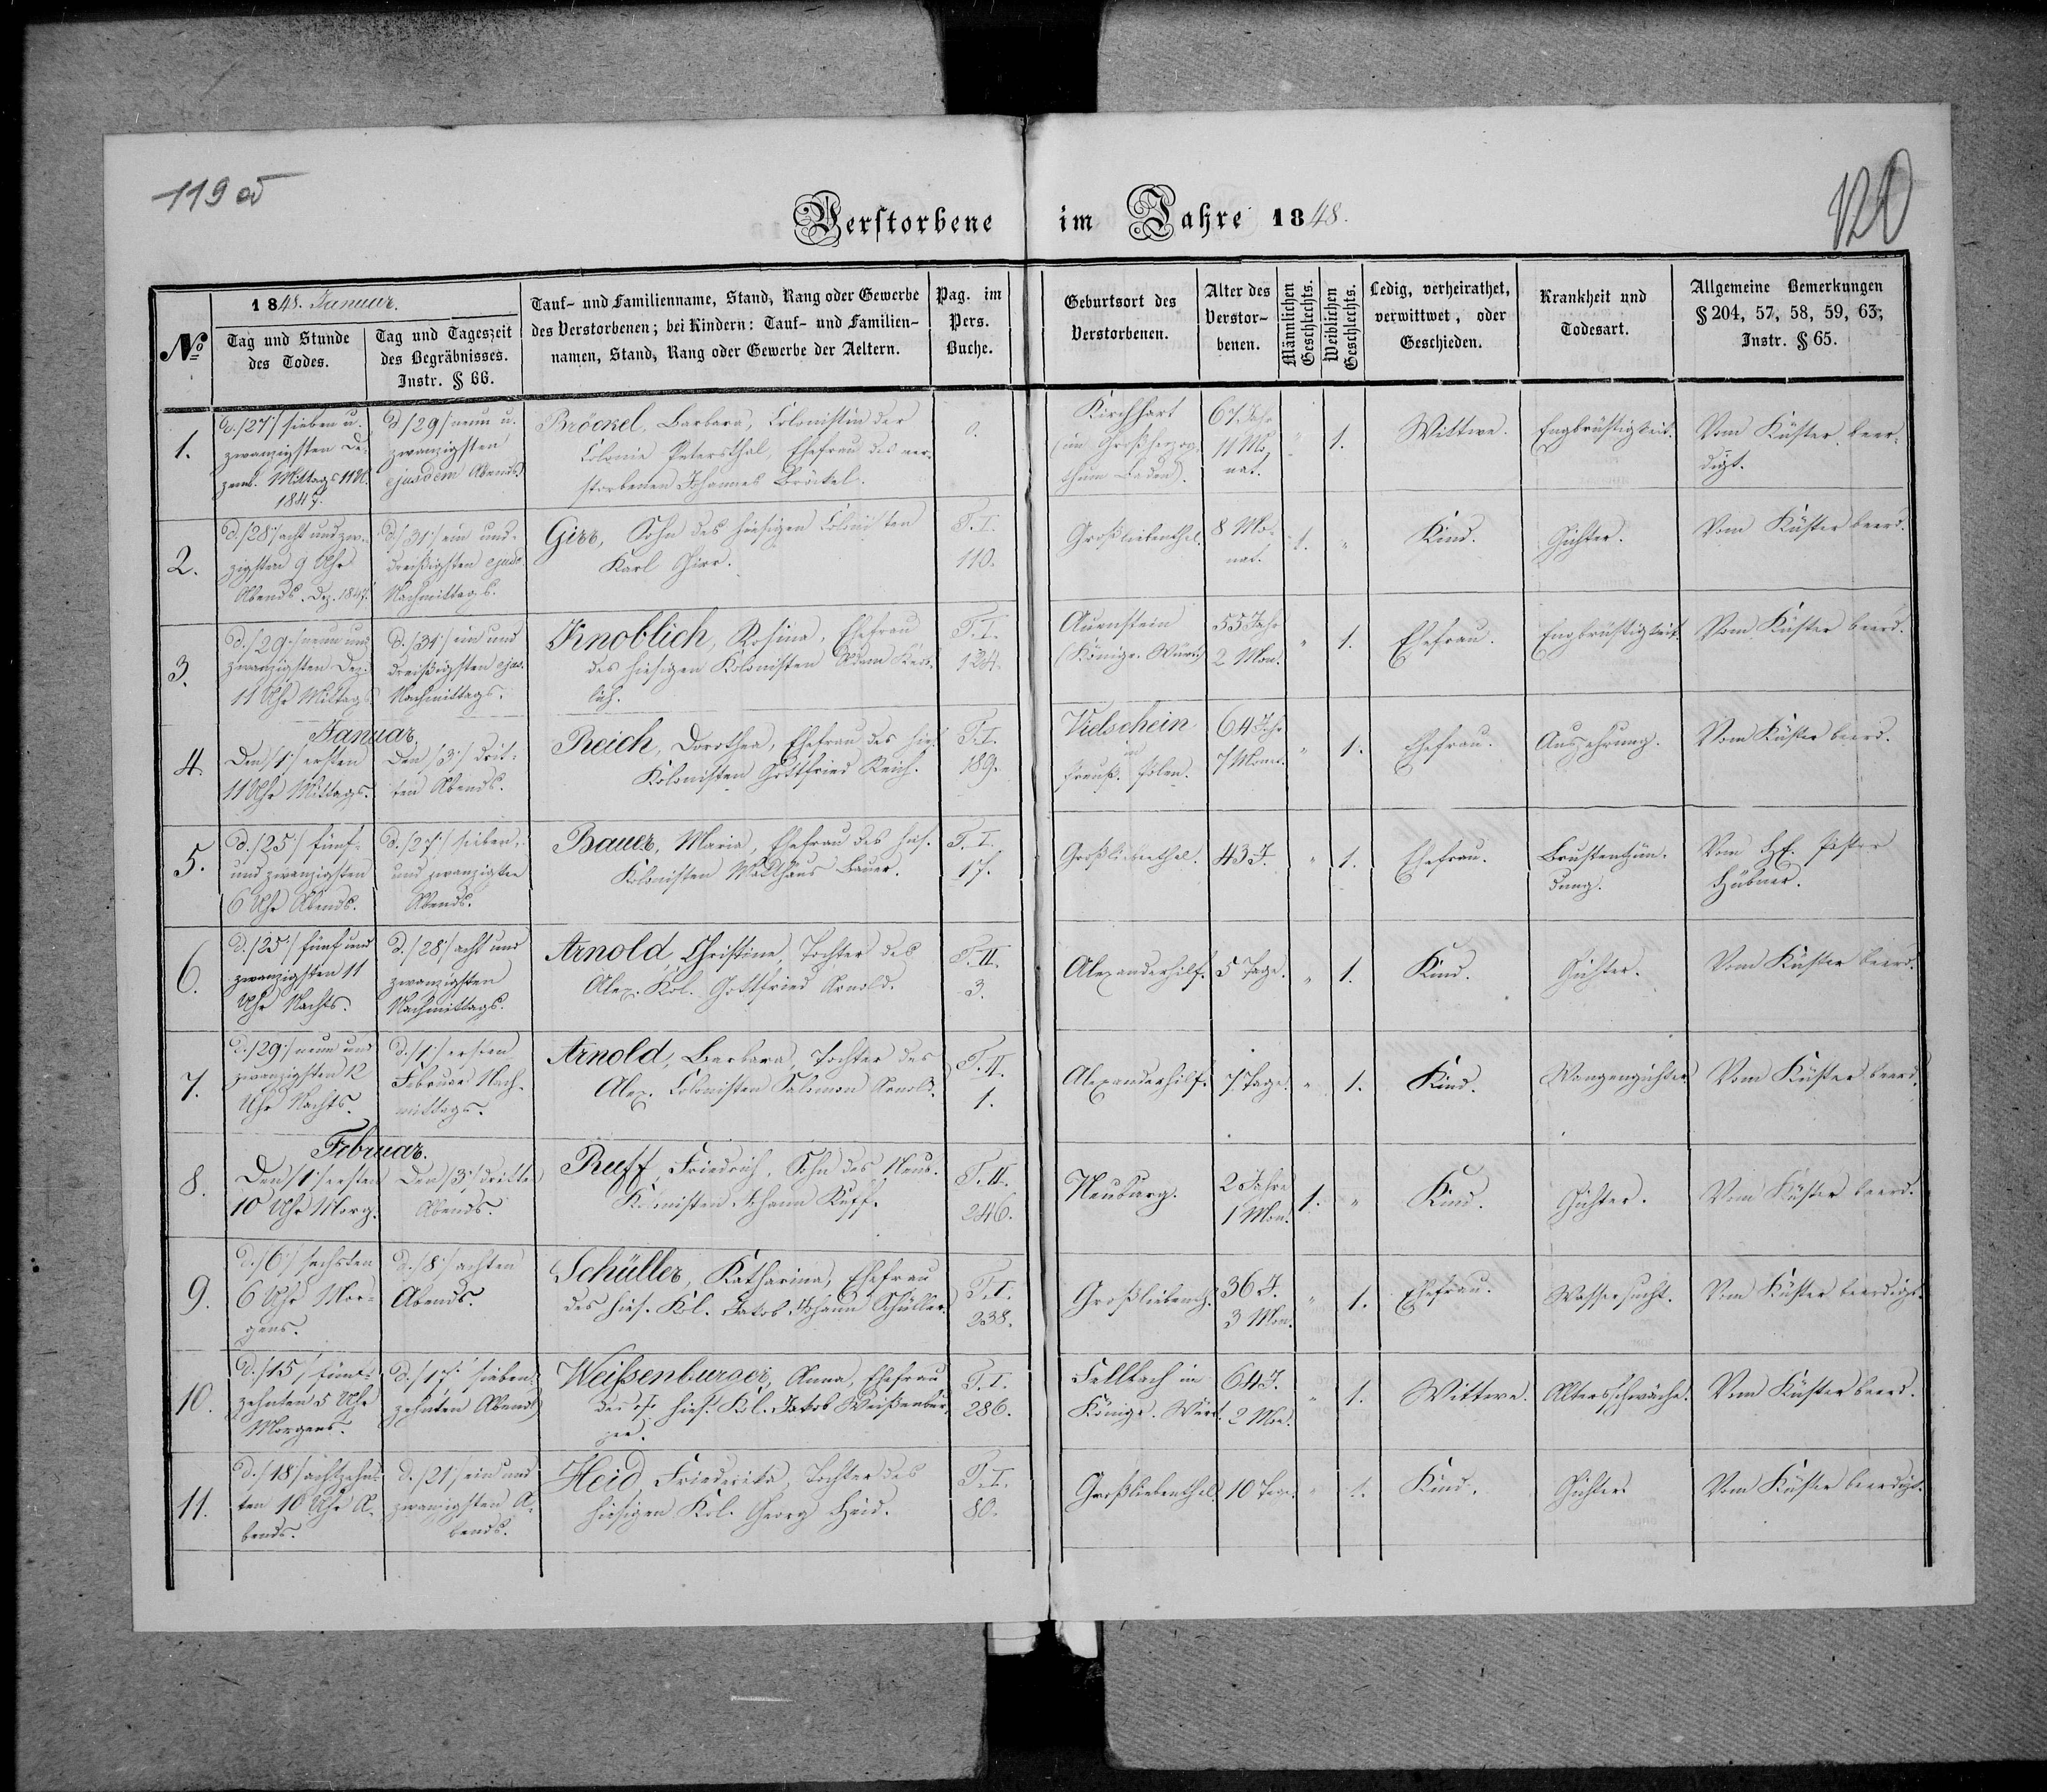 119 об
120
Verstorbene im Jahre 1848.
№
1848. Januar.
Tag und Stunde
des Todes.
Tag und Tageszeit
des Begräbnisses.
Instr. § 66.
Tauf- und Familienname, Stand, Rang oder Gewerbe
des Verstorbenen; bei Kindern: Tauf- und Familien-
namen, Stand, Rang oder Gewerbe der Aeltern.
Pag. im
Pers.
Buche.
Geburtsort des
Verstorbenen.
Alter des
Verstor-
benen.
Männlichen
Geschlechts.
Weiblichen
Geschlechts.
Ledig, verheirathet,
verwittwet, oder
Geschieden.
Krankheit und
Todesart.
Allgemeine Bemerkungen
§ 204, 57, 58, 59, 63,
Instr. § 65.
1.
d. /27/ sieben u.
zwanzigsten De-
zemb. Mittags 11 U.
1847.
d /29/ neun u.
zwanzigsten
ejusdem Abends
Bröckel, Barbara, Colonistin der
Colonie Petersthal, Ehefrau des ver-
storbenen Johannes Bröckel.
0.
Kirchhart
(im Großherzog-
thum Baden).
67 Jahr
11 Mo-
nat.
"
1.
Wittwe.
Engbrüstigkeit.
Vom Küster beer-
digt.
2.
d. /28/ acht und zw-
zigsten 9 Uhr
Abends. Dez. 1847.
d /31/ ein und
dreißigsten ejusd.
Nachmittags.
Girr, Sohn des hiesigen Colonisten
Karl Girr.
T. I.
110.
Großliebenthal.
8 Mo-
nat.
1.
"
Kind.
Gichter.
Vom Küster beerd.
3.
d. /29/ neun und
zwanzigsten Dez.
11 Uhr Mittags
d. /31/ ein und
dreißigsten ejus.
Nachmittags.
Knoblich, Rosina, Ehefrau
des hiesigen Kolonisten Adam
lich.
T. I.
124.
Auenstein
(Königr. Würt.)
55 Jahr
2 Mon.
"
1.
Ehefrau.
Engbrüstigkeit.
Vom Küster beerd.
Januar.
4.
Den /1/ ersten
11 Uhr Mittags.
Den /3/ drit-
ten Abends.
Reich, Dorothea, Ehefrau des hies.
Kolonisten Gottfried Reich.
T. I.
189.
Vielschein
in
Preuß. Polen.
64 Jahr
7 Monat.
"
1.
Ehefrau.
Auszehrung.
Vom Küster beerd.
5.
d. /25/ fünf-
und zwanzigsten
6 Uhr Abends.
d. /27/ sieben-
und zwanzigsten
Abends.
Bauer, Maria, Ehefrau des hies.
Kolonisten Matthäus Bauer.
T. I.
17.
Großliebenthal.
43 J.
"
1.
Ehefrau.
Brustentzün-
dung.
Vom H. Pastor
Hübner.
6.
d. /25/ fünf und
zwanzigsten 11
Uhr Nachts.
d. /28/ acht und
zwanzigsten
Nachmittags.
Arnold, Christina, Tochter des
Alex. Kol. Gottfried Arnold.
T. II.
3.
Alexanderhilf.
5 Tage.
"
1.
Kind.
Gichter.
Vom Küster beerd.
7.
d. /29/ neun und
zwanzigsten 12
Uhr Nachts.
d. /1/ ersten
Februar Nach-
mittags.
Arnold, Barbara, Tochter des
Alex. Colonisten Salomon Arnold.
T. II.
1.
Alexanderhilf.
7 Tage.
"
1.
Kind.
Wangengichter.
Vom Küster beerd.
Februar.
8.
Den /1/ ersten
10 Uhr Morg.
Den /3/ dritten
Abends.
Ruff, Friedrich, Sohn des Neub.
Kolonisten Johann Ruff.
T. II.
246.
Neuburg.
2 Jahre
1 Mon.
1.
"
Kind.
Gichter.
Vom Küster beerd.
9.
d. /6/ sechsten
6 Uhr Mor-
gens.
d. /8/ achten
Abends.
Schüller, Katharina, Ehefrau
des hies. Kol. Jakob Johann Schüller.
T. I.
238.
Großliebenth.
36 J.
3 Mon.
"
1.
Ehefrau.
Wassersucht.
Vom Küster beerdigt.
10.
d. /15/ fünf-
zehnten 5 Uhr
Morgens.
d. /17/ sieben-
zehnten Abends
Weißenburger, Anna, Ehefrau
des hies. Kol. Jakob Weißenbur-
ger.
T. I.
286.
Fellbach im
Königr. Würt.
64 J.
2 Mon.
"
1.
Wittwe.
Altersschwäche.
Vom Küster beerd.
11.
d. /18/ achtzehn-
ten 10 Uhr A-
bends.
d. /21/ ein und
zwanzigsten A-
bends.
Heid, Friederika, Tochter des
hiesigen Kol. Georg Heid.
T. I.
80.
Großliebenthal.
10 Tage.
"
1.
Kind.
Gichter.
Vom Küster beerdigt.